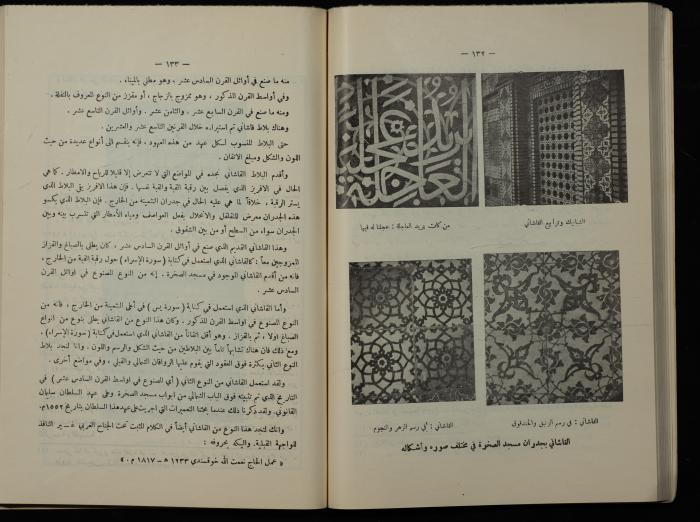 — ١٣٢ —
الشبابيك وتراويع القاشاني
من كانت يريد العاجلة : عجلنا له فيها
القاشاني : في رسم الزنبق والخندقوق
القاشاني : في رسم الزهر والنجوم
القاشاني بجدران مسجد الصخرة في مختلف صوره وأشكاله
— ١٣٣ —
منه ما صنع في أوائل القرن السادس عشر ، وهو مطلي بالميناء .
وفي أواسط القرن المذكور ، وهو ممزوج بالزجاج ، أو مقزز من النوع المعروف بالتفلة .
ومنه ما صنع في القرن السابع عشر ، والثامن عشر . وأوائل القرن التاسع عشر .
وهناك بلاط قاشاني تم استيراده خلال القرنين التاسع عشر والعشرين .
حتى البلاط المنسوب لسكل عهد من هذه العهود ، فإنه ينقسم الى أنواع عديدة من حيث
اللون والشكل ومبلغ الاتقان .
وأقدم البلاط القاشاني نجده في المواضع التي لا تتعرض إلا قليلا للرياح والامطار . كما هي
الحال في الافريز الذي يفصل بين رقبة القبة والقبة نفسها . فإن هذا الافريز يقي البلاط الذي
يستر الرقبة ، خلافاً لما هي عليه الحال في جدران التثمينة من الخارج . فإن البلاط الذي يكسو
هذه الجدران معرض للتقلقل والانحلال بفعل العواصف ومياه الأمطار التي تتسرب بينه وبين
الجدران سواء من السطح أو من بين الشقوق .
وهذا القاشاني القديم الذي صنع في أوائل القرن السادس عشر ، كان يطلى بالصباغ والقزاز
المزوجين معاً : كالقاشاني الذي استعمل في كتابة ( سورة الإسراء ) حول رقبة القبة من الخارج ،
فانه من أقدم القاشاني الموجود في مسجد الصخرة . إنه من النوع المصنوع في اوائل القرن
السادس عشر .
وأما القاشاني الذي استعمل في كتابة ( سورة يس ) في أعلى التثمينة من الخارج ، فانه من
النوع المصنوع في اواسط القرن المذكور . وكان هذا النوع من القاشاني يطلى بنوع من انواع
الصباغ اولا ، ثم بالقزاز . وهو أقل اتقاناً من القاشاني الذي استعمل في كتابة ( سورة الإسراء ) ،
ومع ذلك فان هناك تشابهاً تاماً بين البلاطين من حيث الشكل والرسم واللون . وانا لنجد بلاط
النوع الثاني بكثرة فوق العقود التي يقوم عليها الرواقان الشمالي والقبلي ، وفي مواضع أخرى .
ولقد استعمل القاشاني من النوع الثاني ( أي المصنوع في اواسط القرن السادس عشر ) في
التاريخ الذي تم تثبيته فوق الباب الشمالي من ابواب مسجد الصخرة وعلى عهد السلطان سليمان
القانوني . ولقد ذكرنا ذلك عندما بحثنا التعميرات التي اجريت على عهد هذا السلطان بتاريخ ١٥٥٢م .
وانك لتجد هذا النوع من القاشاني أيضاً في الكلام المثبت تحت الجناح الغربي النافذ
للواجهة القبلية . واليكه بحروفه :
« عمل الحاج نعمت الله خوقسندي ١٢٣٣ ه – ١٨١٧ م . »